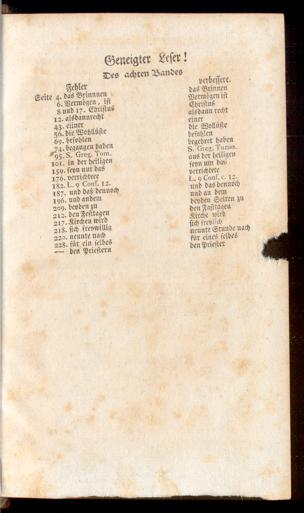 Geneigter Leser!
Des achten Bandes
Fehler verbessere.
Seite 4. das Brinnnen das Brinnen
6. Vermögen, ist Vermögen ist
8 und 17. Christus Christus
12. alsdannrecht alsdann recht
43. eiiner einer
56. die Wohllüste die Wollüste
69. befohlen befohlen
74. begangen haben begehret haben
95. S. Greg. Tom. S. Greg. Turon.
101. in der heiligen aus der heiligen
159. seyn nur das seyn um das
176. verrichtete verrichtete
182. L. 9 Conf. 12. L. 9 Conf. c. 12.
187. und daß dennoch und das dennoch
196. und andem und an dem
209. beyden zu beyden Seiten zu
212. den Festtagen den Fasttagen
217. Kirchen wird Kirche wird
218. sich freywillig sich freylich
220. neunte nach neunte Stunde nach
228. für ein selbes für eines selbes
— den Priestern den Priester